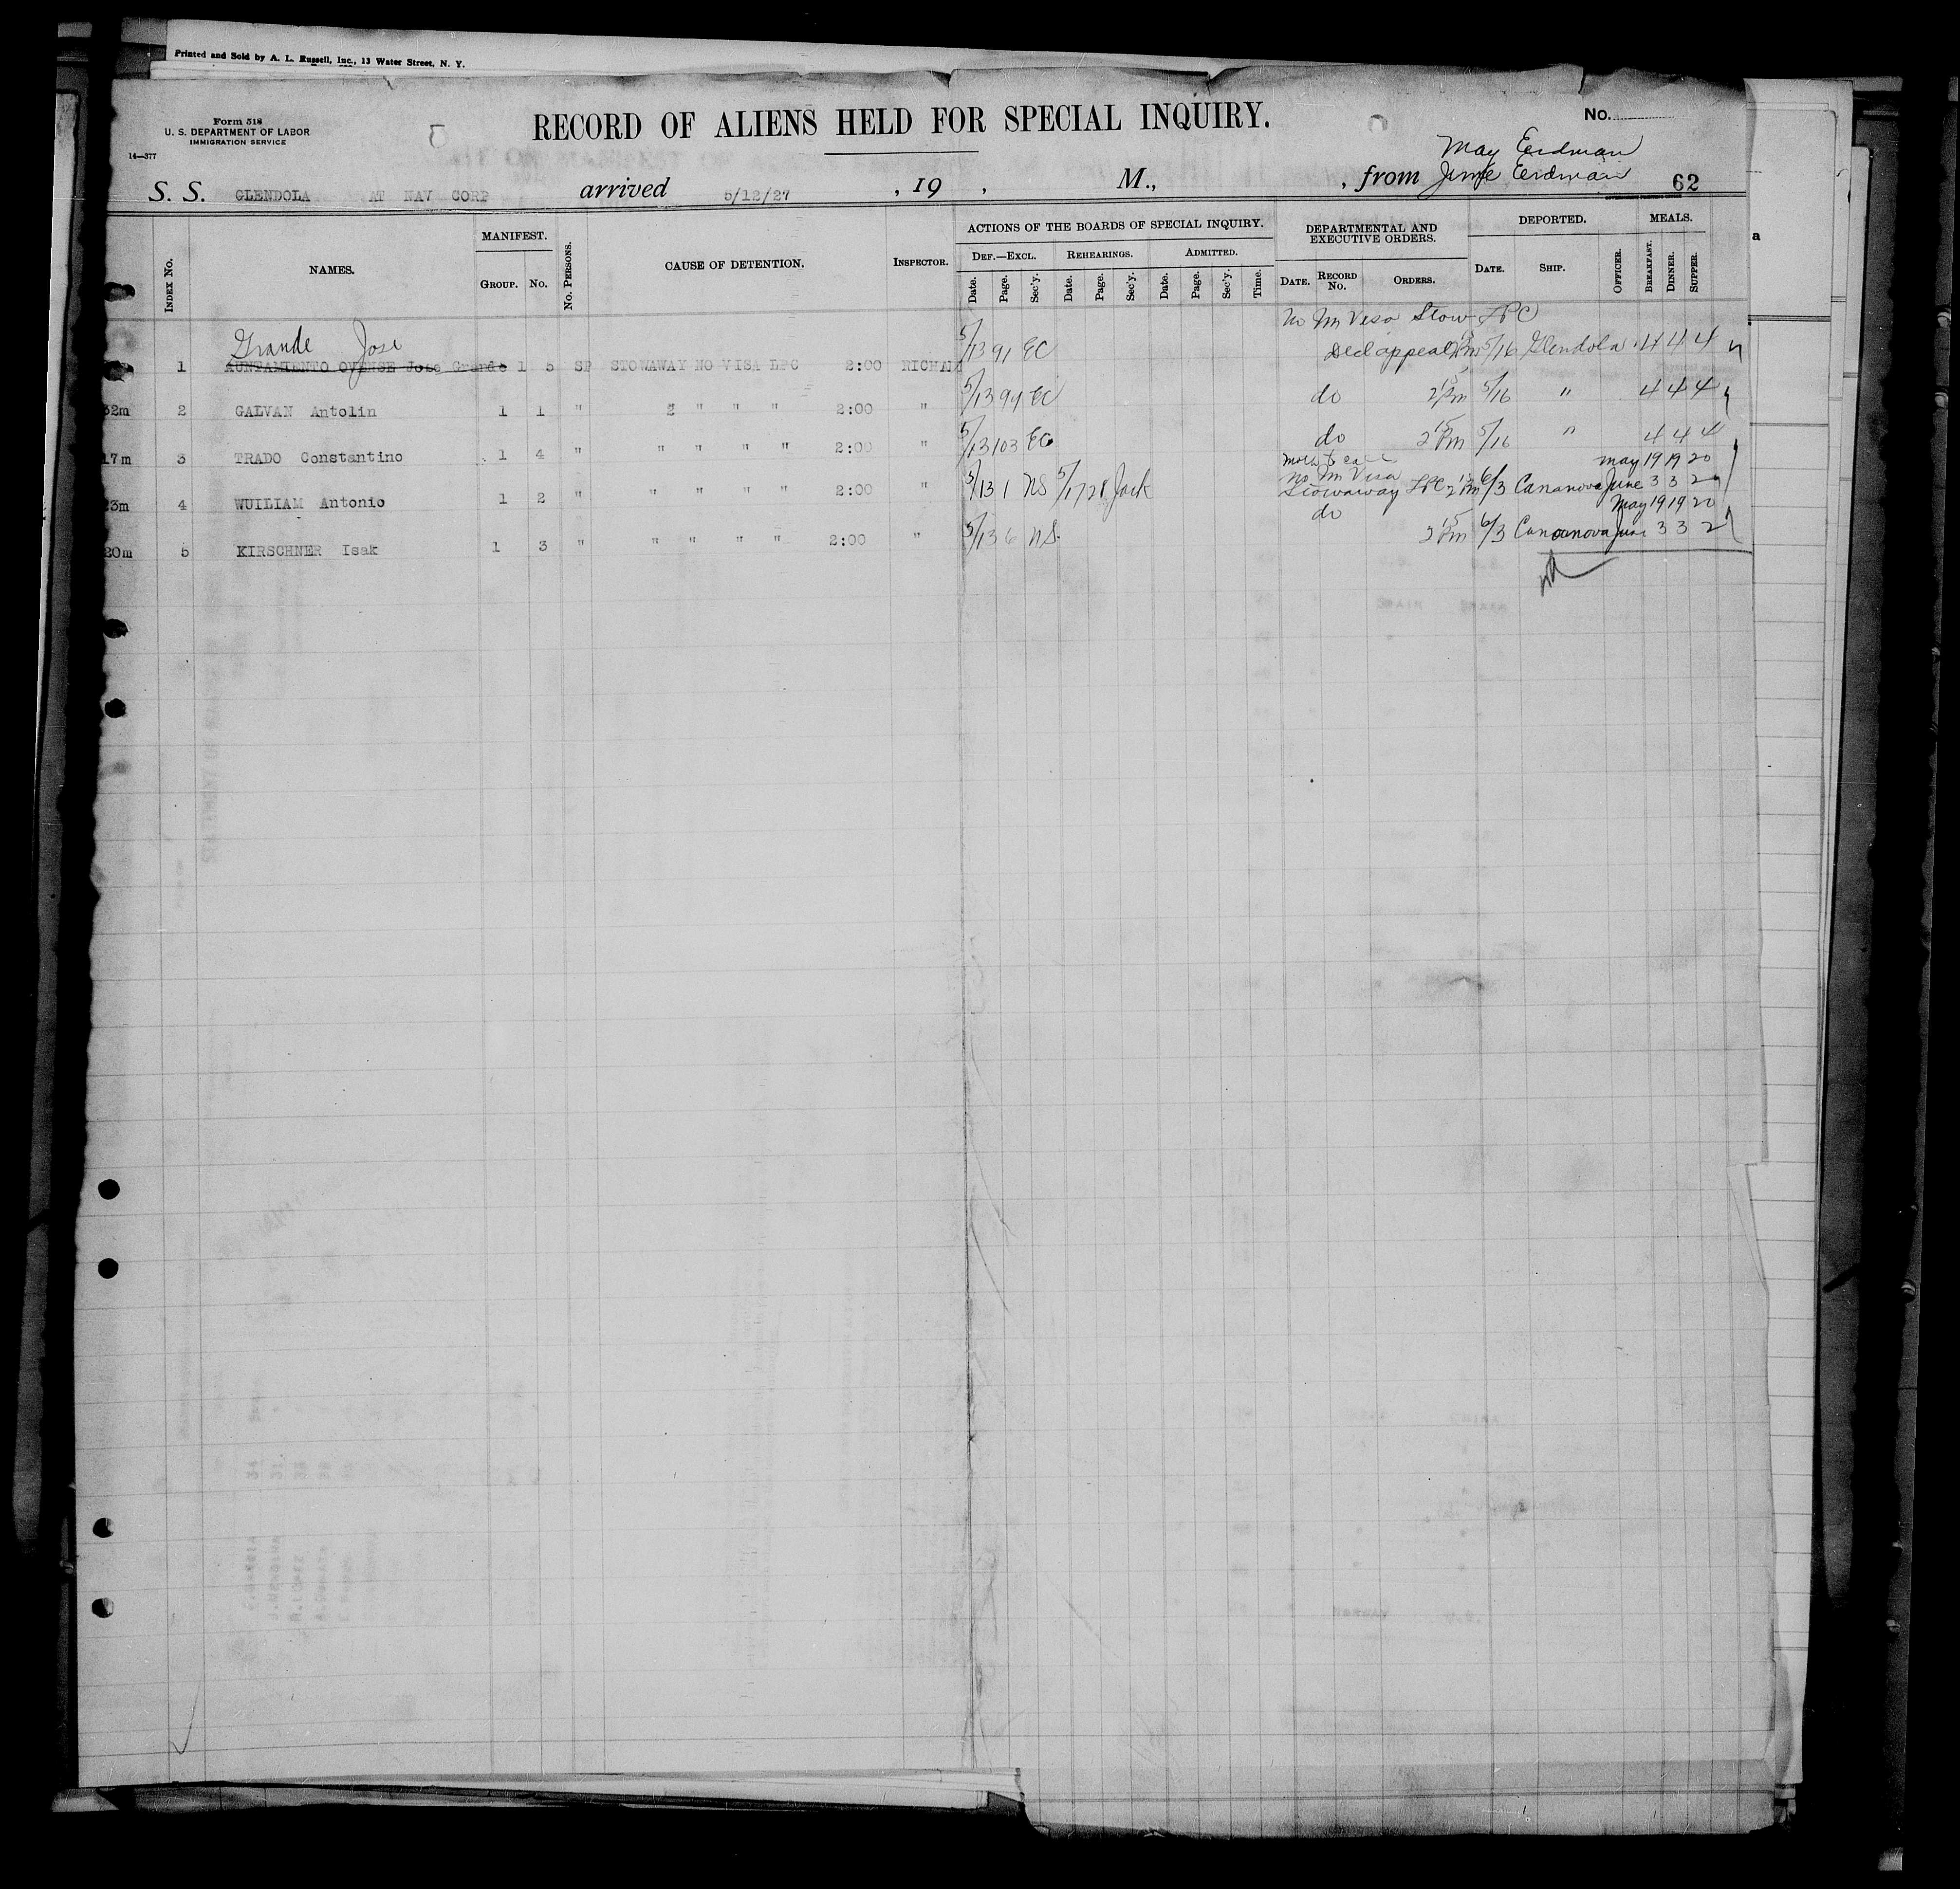 Printed and Sold by A. L. Russell, Inc., 13 Water Street, N. Y.
Form 518
U. S. DEPARTMENT OF LABOR
IMMIGRATION SERVICE
14—377
RECORD OF ALIENS HELD FOR SPECIAL INQUIRY.
No.
May Erdman
June Erdman
S. S. GLENDOLA AT NAV CORP arrived 5/12/27 , 19 , M., , from 62
INDEX No. NAMES. MANIFEST. GROUP. No. No. PERSONS. CAUSE OF DETENTION. INSPECTOR.
ACTIONS OF THE BOARDS OF SPECIAL INQUIRY.
DEF.—EXCL. REHEARINGS. ADMITTED.
Date. Page. Sec'y. Date. Page. Sec'y. Date. Page. Sec'y. Time.
DEPARTMENTAL AND EXECUTIVE ORDERS.
DATE. RECORD No. ORDERS.
DEPORTED.
DATE. SHIP. OFFICER.
MEALS.
BREAKFAST. DINNER. SUPPER.
a
No Im Visa Stow LPC
Grande Jose
1 AUNTAMIENTO OVENSE Jose Grande 1 5 SP STOWAWAY NO VISA LPC 2:00 RICHA 5/13 91 EC Decl appeal 5/16 Glendola 4 4 4
32m 2 GALVAN Antolin 1 1 " " " " 2:00 " 5/13 94 EC do 2 15 Pm 5/16 " 4 4 4
17m 3 TRADO Constantino 1 4 " " " " " 2:00 " 5/13 103 EC do 2 15 Pm 5/16 " 4 4 4
No Im Visa May 19 19 20
23m 4 WUILIAM Antonio 1 2 " " " " " 2:00 " 5/13 1 NS 5/17 28 Jack Stowaway LPC 2 15 Pm 6/3 Cananova June 3 3 2
do May 19 19 20
20m 5 KIRSCHNER Isak 1 3 " " " " " 2:00 " 5/13 6 NS. 2 15 Pm 6/3 Cananova June 3 3 2